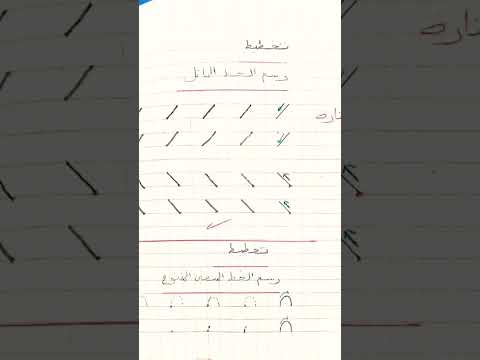 تخطيط
رسم الخط المائل
تخطيط
رسم الخط المنحني المفتوح